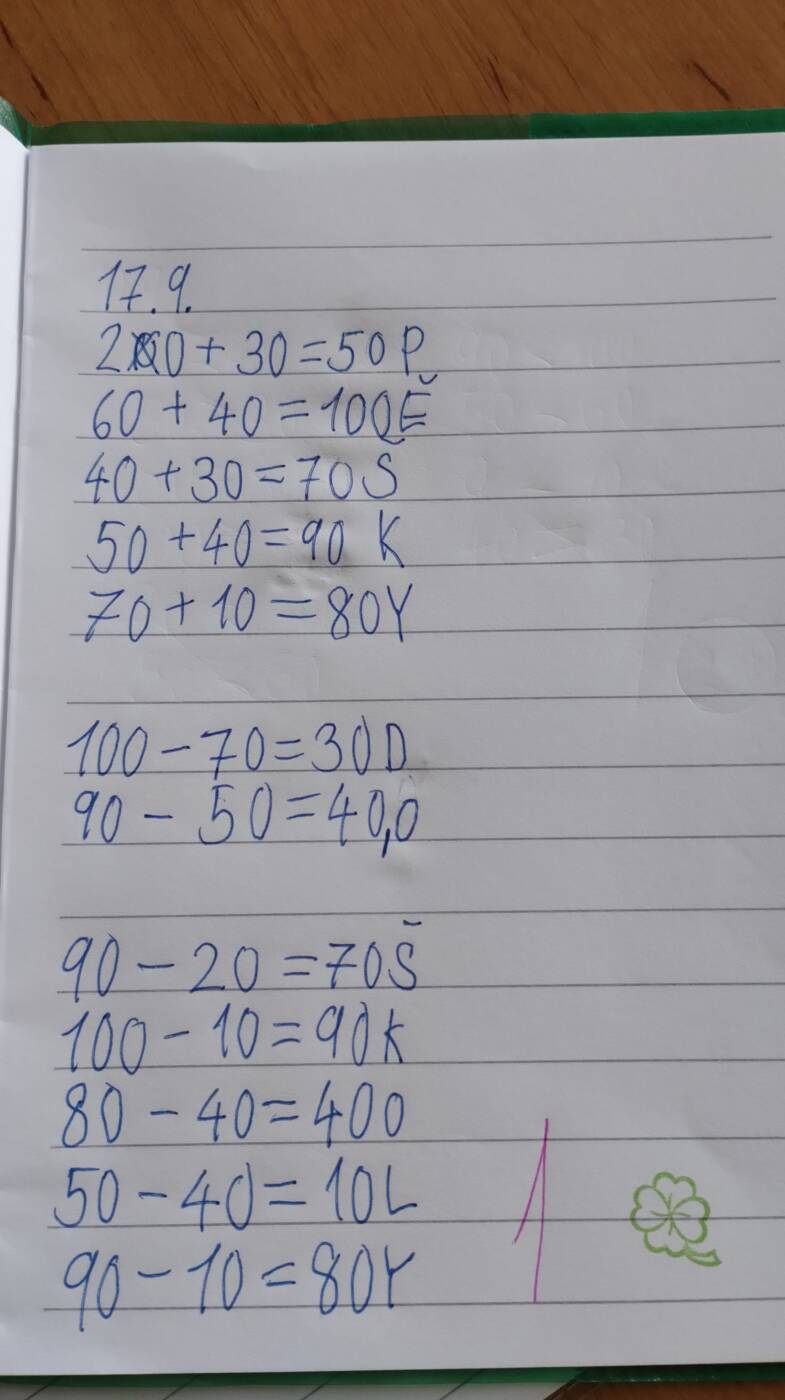 17.9.
20 + 30 = 50 P
60 + 40 = 100 Ě
40 + 30 = 70 S
50 + 40 = 90 K
70 + 10 = 80 Y
100 - 70 = 30 D
90 - 50 = 40,0
90 - 20 = 70 Š
100 - 10 = 90 K
80 - 40 = 40 O
50 - 40 = 10 L
90 - 10 = 80 Y
1